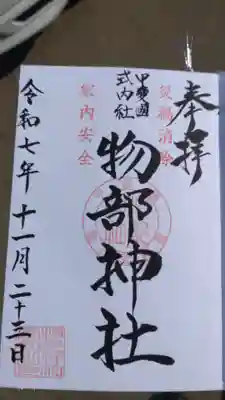 奉拝
災禍消除
甲斐國
式内社
家内安全
物部神社
令和七年十一月二十三日